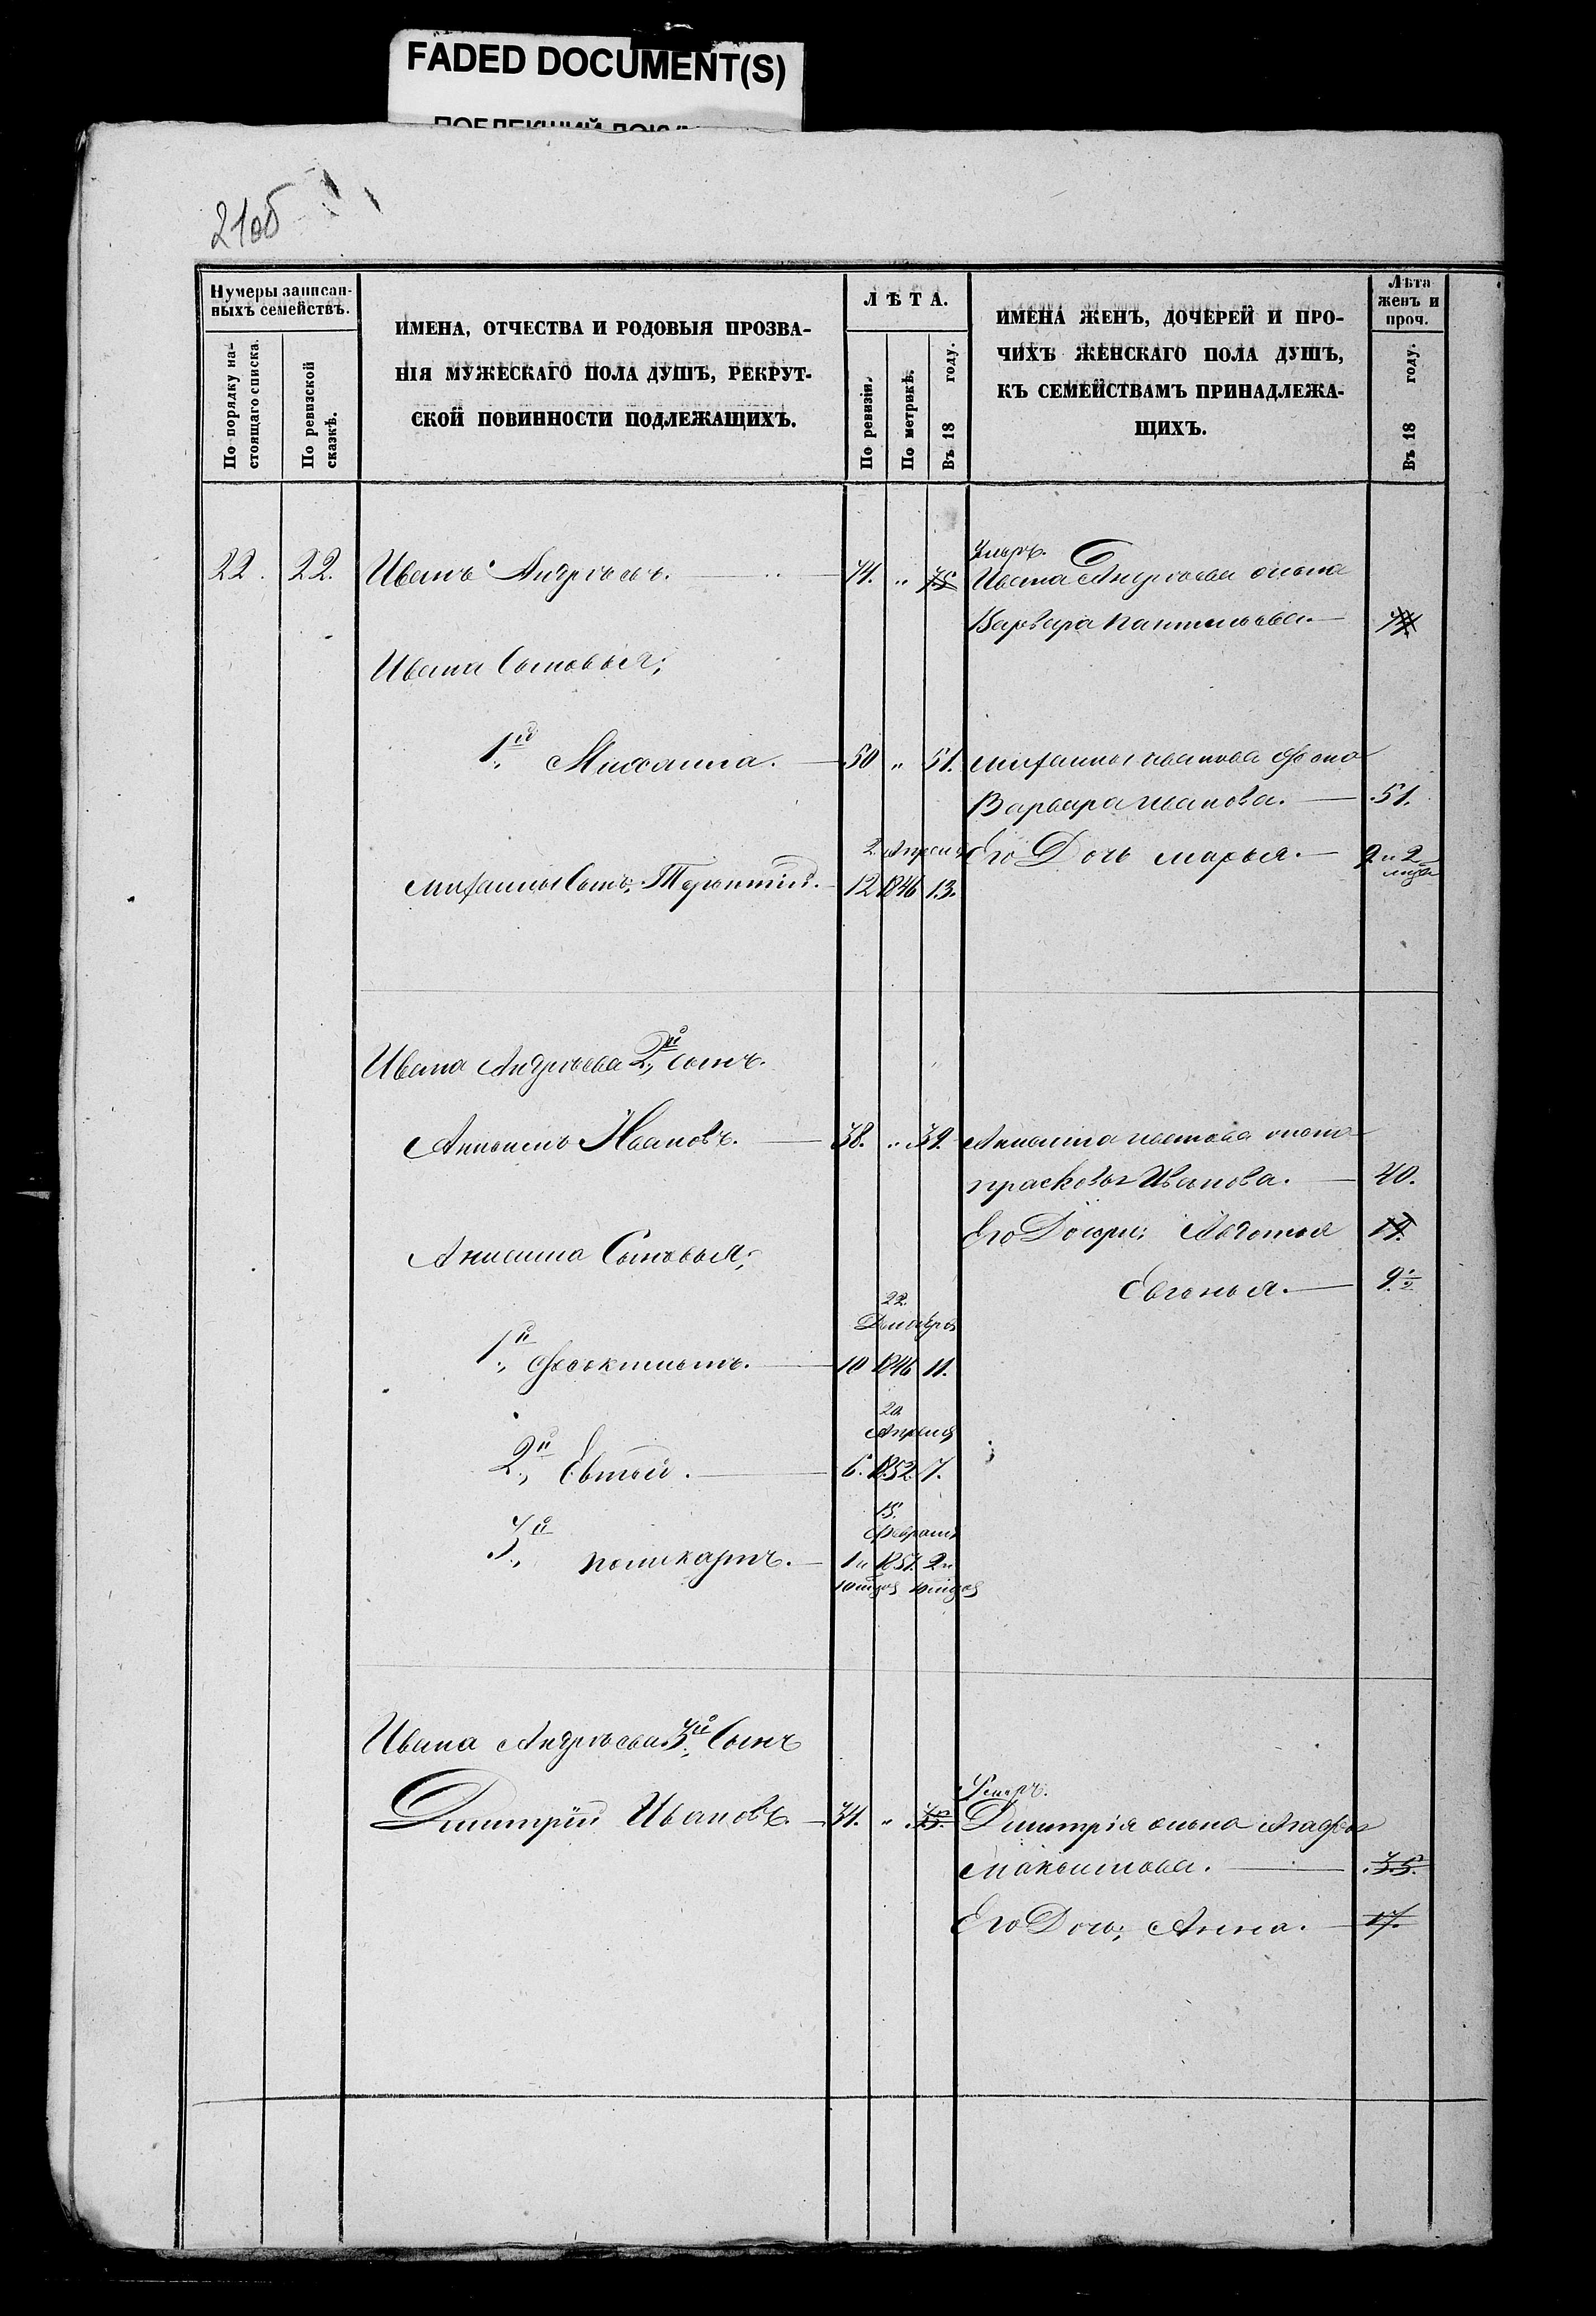 FADED DOCUMENT(S)
21об
Нумеры записан-
ныхъ семействъ.
По порядку на-
стоящаго списка.
По ревизской
сказкѣ.
ИМЕНА, ОТЧЕСТВА И РОДОВЫЯ ПРОЗВА-
НІЯ МУЖЕСКАГО ПОЛА ДУШЪ, РЕКРУТ-
СКОЙ ПОВИННОСТИ ПОДЛЕЖАЩИХЪ.
ЛѢТА.
По ревизіи.
По метрикѣ.
Въ 18 году.
ИМЕНА ЖЕНЪ, ДОЧЕРЕЙ И ПРО-
ЧИХЪ ЖЕНСКАГО ПОЛА ДУШЪ,
КЪ СЕМЕЙСТВАМЪ ПРИНАДЛЕЖА-
ЩИХЪ.
Лѣта
женъ и
проч.
Въ 18 году.
умеръ.
22. 22. Иванъ Андрѣевъ. 74. „ 75 Ивана Андрѣева жена
Варвара Пантелѣева.
Ивана Сыновья;
1й Михаила. 50 „ 51. Михаилы Иванова жена
Варвара Иванова. 51.
2 Апреля Его Дочь Марья. 9. и 2
Михаилы Сынъ; Терентій. 12 1846 13.
Ивана Андрѣева 2й сынъ.
Анисимъ Ивановъ. 38. „ 39. Анисима Иванова жена
Прасковья Иванова. 40.
Его Дочери; Авдотья
Анисима Сыновья;
Евгенья. 9 1/2
22.
Декабря
1й Феоктистъ. 10 1846 11.
20
Апреля
2й Евтей. 6. 1852. 7.
15.
Февраля
3й Поликарпъ. 1 и 1857. 2 и
Ивана Андрѣева 3й Сынъ
умеръ.
Дмитрій Ивановъ. 34. „ 35. Дмитрія жена Агафья
Максимова. 35.
Его Дочь; Анна. 17.